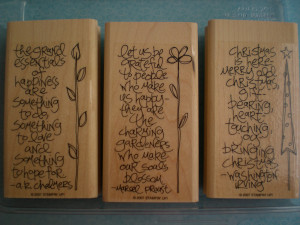 the grand
essentials
of
happiness
are
something
to do
something
to love
and
something
to hope for
-a.k. chalmers
let us be
grateful
to people
who make
us happy-
they are
the
charming
gardeners
who make
our souls
blossom
-marcel proust
christmas
is here
merry old
christmas
gift
bearing
heart
touching
joy
bringing
christmas
-washington
irving